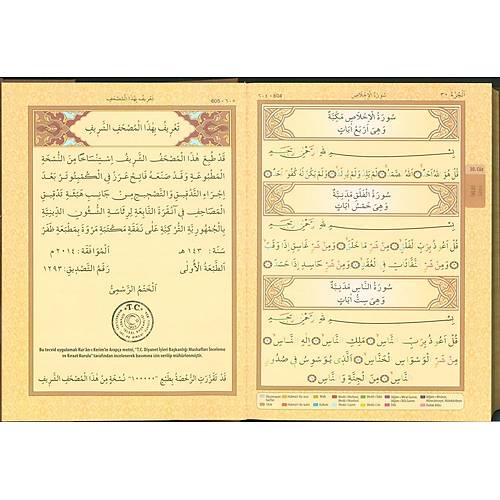 الجزء ٣٠
سورة الإخلاص
604 - ٦٠٤
سُورَةُ الْإِخْلَاصِ مَكِّيَّةٌ
وَهِيَ أَرْبَعُ آيَاتٍ
بِسْمِ اللّٰهِ الرَّحْمٰنِ الرَّحِيمِ
قُلْ هُوَ اللّٰهُ اَحَدٌ ۝ اَللّٰهُ الصَّمَدُ ۝ لَمْ يَلِدْ وَلَمْ يُولَدْ ۝ وَلَمْ يَكُنْ لَهُ كُفُوًا اَحَدٌ ۝
سُورَةُ الْفَلَقِ مَدَنِيَّةٌ
وَهِيَ خَمْسُ آيَاتٍ
بِسْمِ اللّٰهِ الرَّحْمٰنِ الرَّحِيمِ
قُلْ اَعُوذُ بِرَبِّ الْفَلَقِ ۝ مِنْ شَرِّ مَا خَلَقَ ۝ وَمِنْ شَرِّ غَاسِقٍ اِذَا وَقَبَ ۝
وَمِنْ شَرِّ النَّفَّاثَاتِ فِي الْعُقَدِ ۝ وَمِنْ شَرِّ حَاسِدٍ اِذَا حَسَدَ ۝
سُورَةُ النَّاسِ مَدَنِيَّةٌ
وَهِيَ سِتُّ آيَاتٍ
بِسْمِ اللّٰهِ الرَّحْمٰنِ الرَّحِيمِ
قُلْ اَعُوذُ بِرَبِّ النَّاسِ ۝ مَلِكِ النَّاسِ ۝ اِلٰهِ النَّاسِ ۝ مِنْ
شَرِّ الْوَسْوَاسِ الْخَنَّاسِ ۝ اَلَّذِي يُوَسْوِسُ فِي صُدُورِ
النَّاسِ ۝ مِنَ الْجِنَّةِ وَالنَّاسِ ۝
30. Cüz
تعريف بهذا المصحف
605 - ٦٠٥
تَعْرِيفٌ بِهٰذَا الْمُصْحَفِ الشَّرِيفِ
قَدْ طُبِعَ هٰذَا الْمُصْحَفُ الشَّرِيفُ اِسْتِنْسَاخًا مِنَ النُّسْخَةِ
الْمَطْبُوعَةِ وَقَدْ صَنَعَهُ فَائِحْ عُزَرْ فِي الْكُمْبِيُوتَرِ بَعْدَ
اِجْرَاءِ التَّدْقِيقِ وَالتَّصْحِيحِ مِنْ جَانِبِ هَيْئَةِ تَدْقِيقِ
الْمَصَاحِفِ فِي اَنْقَرَةَ التَّابِعَةِ لِرِئَاسَةِ الشُّئُونِ الدِّينِيَّةِ
بِالْجُمْهُورِيَّةِ التُّرْكِيَّةِ عَلٰى نَفَقَةِ مَكْتَبَةِ مَرْوَةَ بِمَطْبَعَةِ ظَفَرْ
سَنَةَ : ١٤٣ هـ الْمُوَافَقَةَ : ٢٠١٤ م
اَلطَّبْعَةُ الْاُولٰى رَقْمُ التَّصْدِيقِ : ١٢٩٣
اَلْخَتْمُ الرَّسْمِيُّ
T.C.
Bu tecvid uygulamalı Kur'ân-ı Kerim'in Arapça metni, "T.C. Diyanet İşleri Başkanlığı Mushafları İnceleme
ve Kıraat Kurulu" tarafından incelenerek basımına izin verilip mühürlenmiştir.
قَدْ تَقَرَّرَتِ الرُّخْصَةُ بِطَبْعِ "١٠٠٠٠٠" نُسْخَةً مِنْ هٰذَا الْمُصْحَفِ الشَّرِيفِ